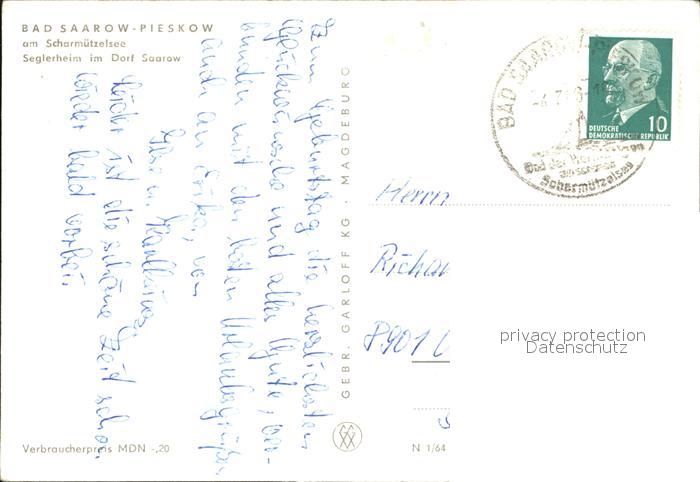 BAD SAAROW-PIESKOW
am Scharmützelsee
Seglerheim im Dorf Saarow
Zum Geburtstag die herzlichsten
Glückwünsche und alles Gute, ver-
bunden mit den besten Urlaubsgrüßen
auch an Erika, von
Leider ist die schöne Zeit schon
wieder bald vorbei.
Verbraucherpreis MDN -,20
GEBR. GARLOFF KG · MAGDEBURG
BAD SAAROW-PIESKOW
Scharmützelsee
DEUTSCHE
DEMOKRATISCHE REPUBLIK
10
Herrn
Richar
P901
N 1/64
privacy protection
Datenschutz